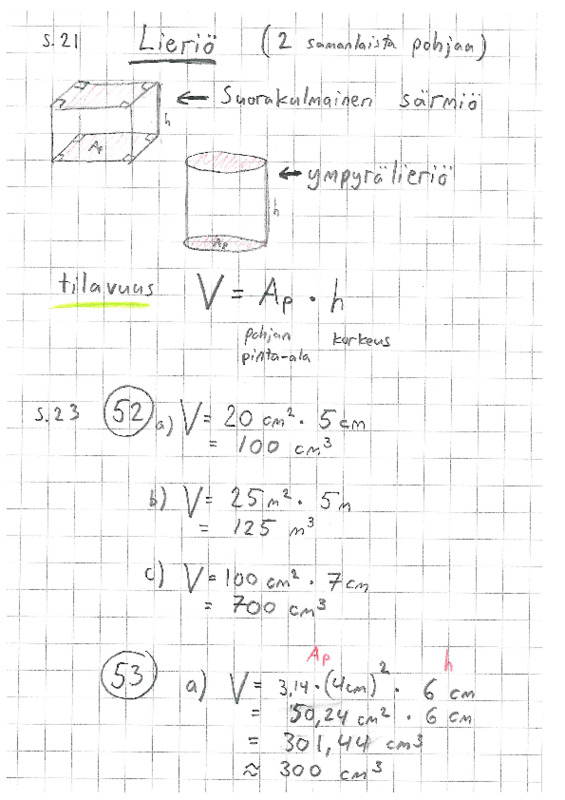 s.21 Lieriö (2 samanlaista pohjaa)
← Suorakulmainen särmiö
h
Ap
← ympyrälieriö
h
Ap
tilavuus V = Ap · h
pohjan pinta-ala korkeus
s.23 52 a) V = 20 cm² · 5 cm
= 100 cm³
b) V = 25 m² · 5 m
= 125 m³
c) V = 100 cm² · 7 cm
= 700 cm³
Ap h
53 a) V = 3,14 · (4cm)² · 6 cm
= 50,24 cm² · 6 cm
= 301,44 cm³
≈ 300 cm³